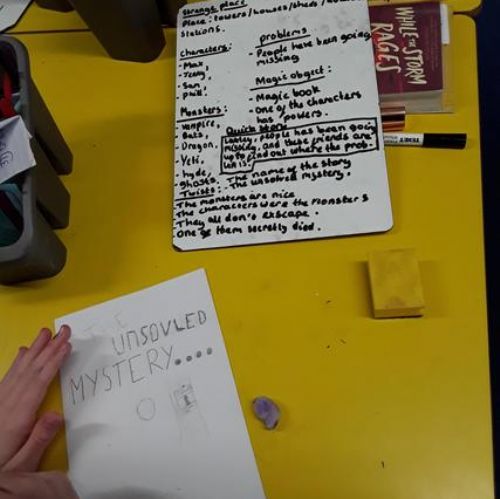 Strange place
Place: towers/houses/sheds/
Stations.
Characters:
- Max,
- Terry,
- Sam
- phil.
Monsters:
- Vampire,
- Bats,
- Dragon,
- Yeti,
- hyde,
- ghosts.
problems
- People have been going
missing
Magic object:
- Magic book
- one of the characters
has powers.
Quick story
Lately, people has been going
missing, and these friends are
up to find out where the prob-
lem is.
- The name of the story
- The unsolved mystery.
Twists:
- The monsters are nice
- The characters were the monsters
- They all don't escape.
- One of them secretly died.
WHILE THE STORM
RAGES
THE
UNSOVLED
MYSTERY....